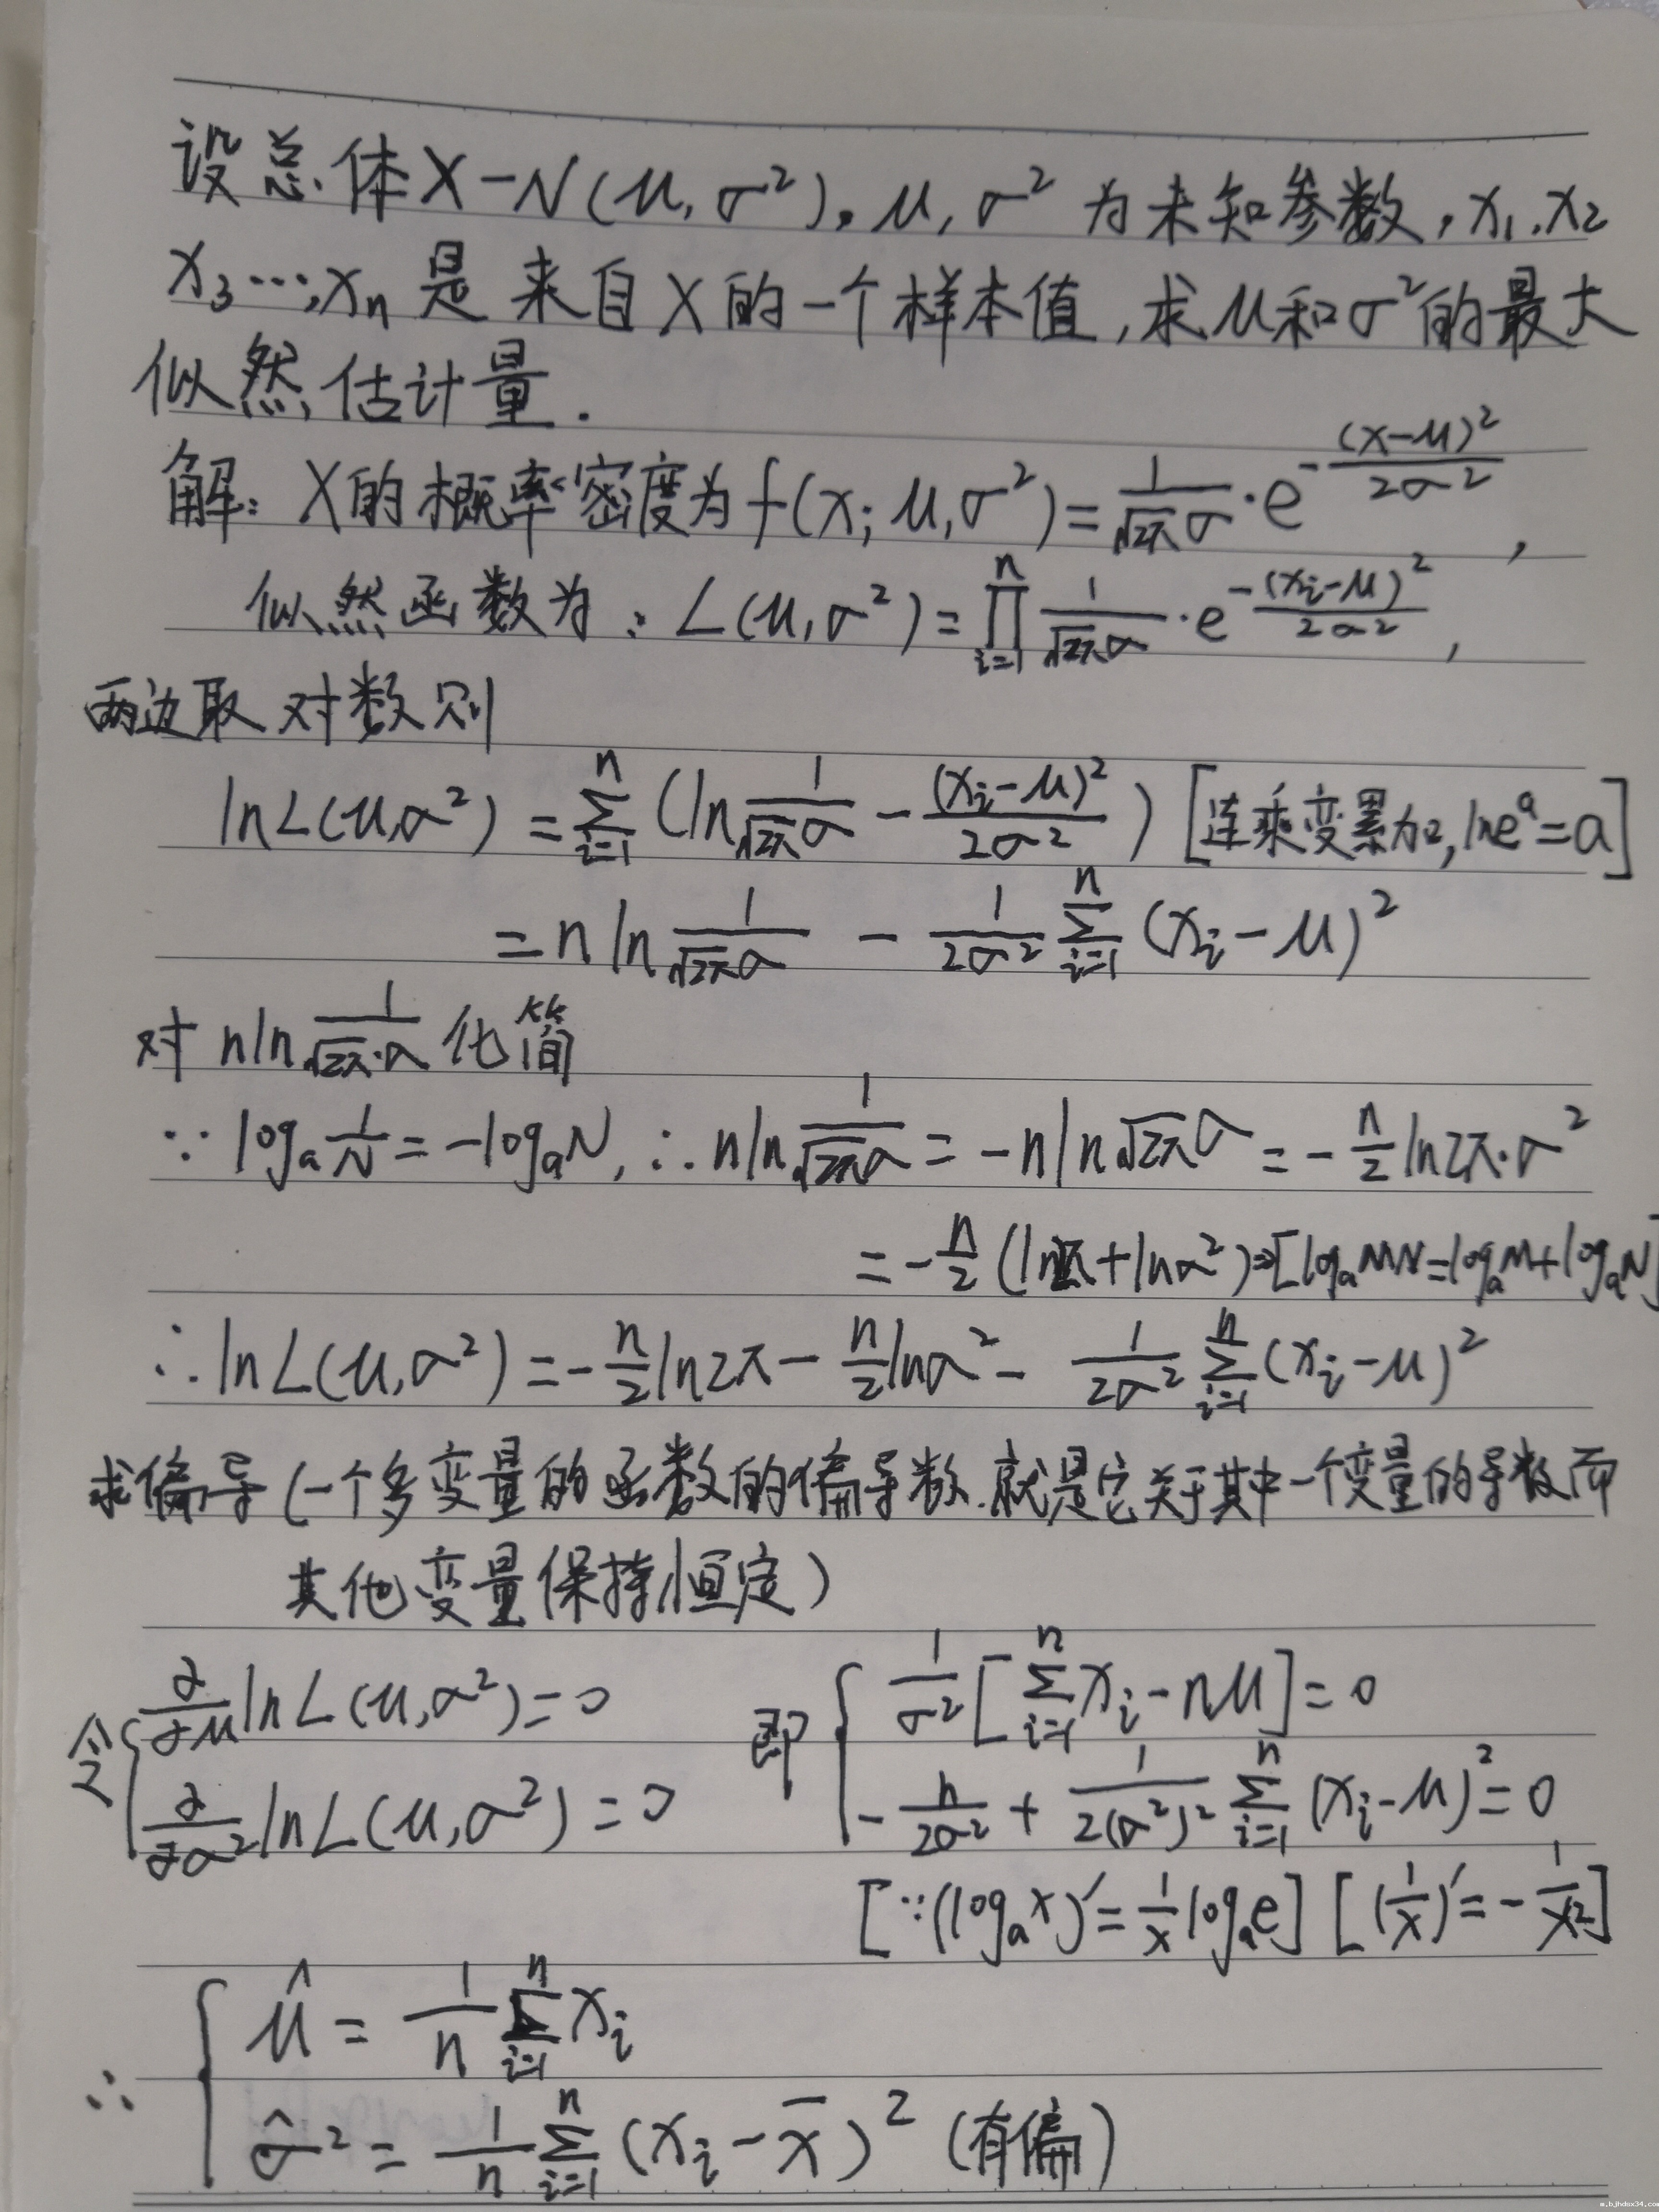 设总体X-N(μ,σ²)。μ,σ²为未知参数,x₁,x₂
x₃…,xₙ是来自X的一个样本值,求μ和σ²的最大
似然估计量.
解:X的概率密度为f(x;μ,σ²)=1/(√2π σ)·e^(-(x-μ)²/(2σ²)),
似然函数为:L(μ,σ²)=∏_{i=1}^{n} 1/(√2π σ)·e^(-(xᵢ-μ)²/(2σ²)),
两边取对数则
lnL(μ,σ²)=∑_{i=1}^{n}(ln 1/(√2π σ) - (xᵢ-μ)²/(2σ²)) [连乘变累加,lneᵃ=a]
=n ln 1/(√2π σ) - 1/(2σ²) ∑_{i=1}^{n}(xᵢ-μ)²
对 n ln 1/(√2π·σ) 化简
∵logₐ 1/N=-logₐN,∴n ln 1/(√2π σ)=-n ln√2π σ=-n/2 ln2π·σ²
=-n/2(ln2π+lnσ²)⇒[logₐMN=logₐM+logₐN]
∴lnL(μ,σ²)=-n/2 ln2π-n/2 lnσ²-1/(2σ²) ∑_{i=1}^{n}(xᵢ-μ)²
求偏导(一个多变量的函数的偏导数.就是它关于其中一个变量的导数而
其他变量保持恒定)
令{∂/∂μ lnL(μ,σ²)=0 即{1/σ²[∑_{i=1}^{n}xᵢ-nμ]=0
∂/∂σ² lnL(μ,σ²)=0 -n/(2σ²)+1/(2(σ²)²) ∑_{i=1}^{n}(xᵢ-μ)²=0
[∵(logₐx)′=1/x logₐe] [(1/x)′=-1/x²]
∴{μ̂=1/n ∑_{i=1}^{n}xᵢ
σ̂²=1/n ∑_{i=1}^{n}(xᵢ-x̄)²(有偏)
m.bjhdex34.com